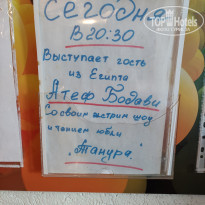 Сегодня
в 20:30
Выступает гость
из Египта
Атеф Бодави
Со своим экстрим шоу
и танцем юбки
"Танура".
TopHotels